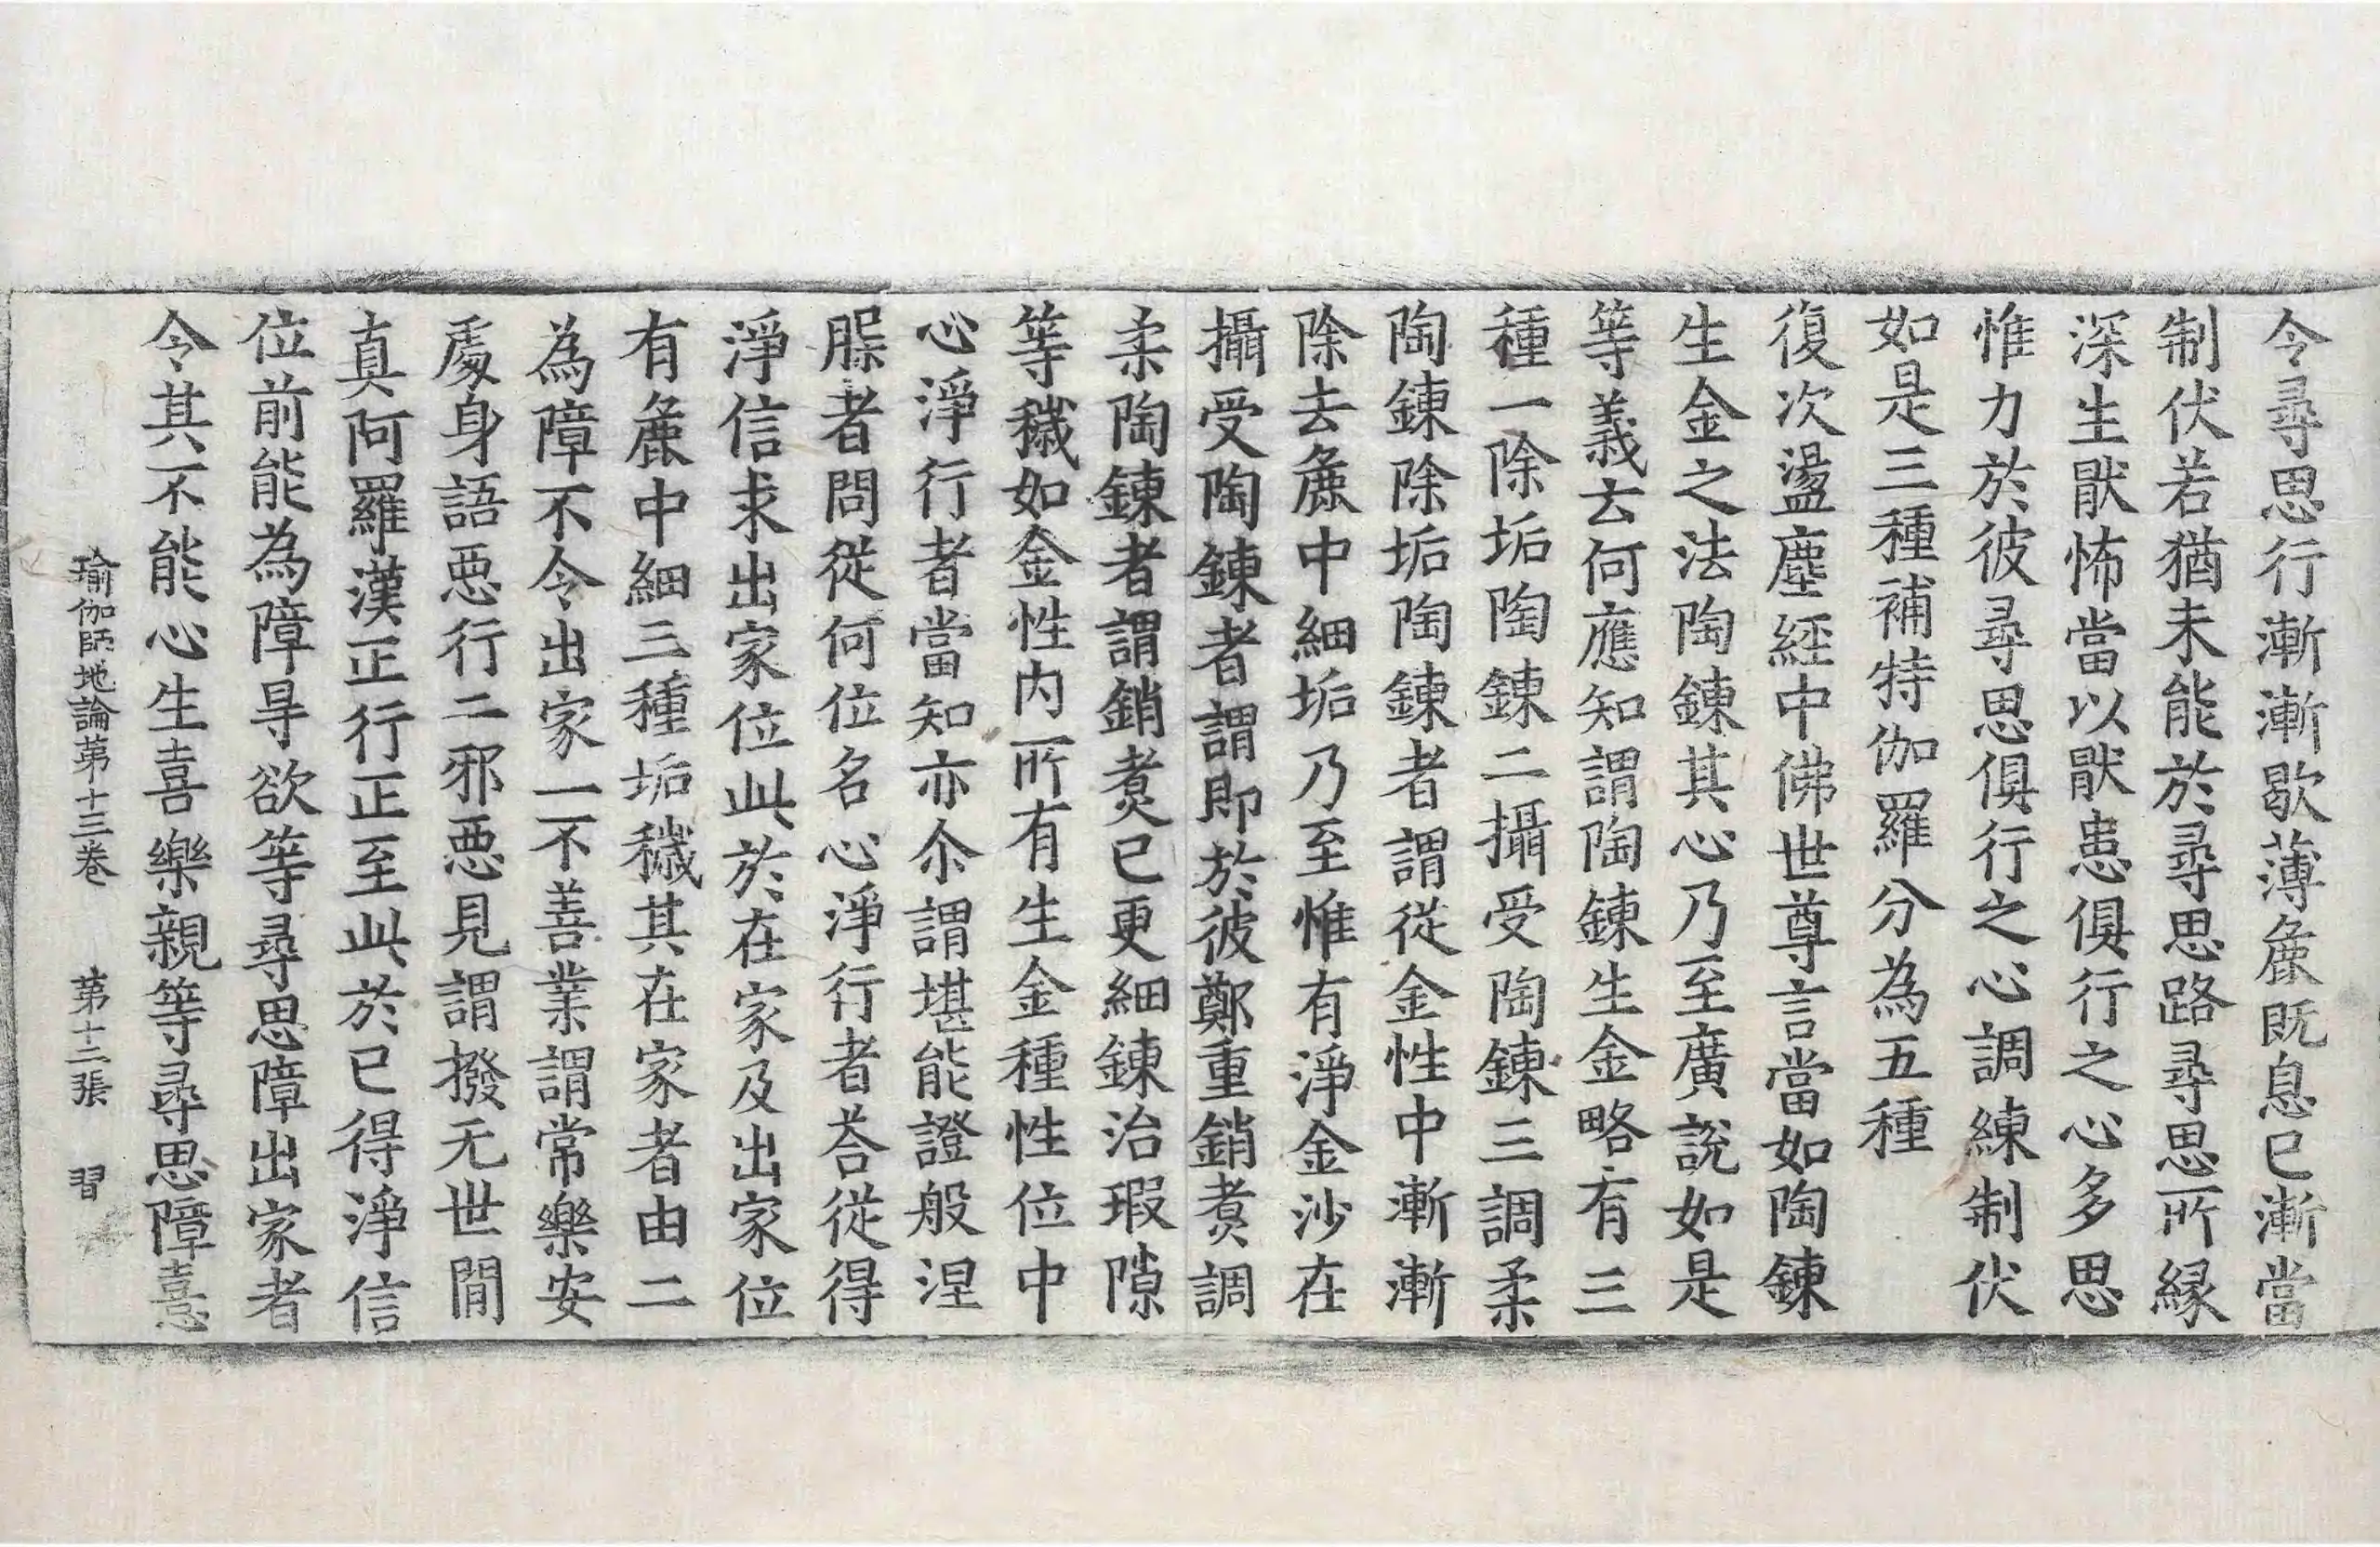 令尋思行漸漸歇薄麁既息已漸當
制伏若猶未能於尋思路尋思所緣
深生猒怖當以猒患俱行之心多思
惟力於彼尋思俱行之心調練制伏
如是三種補特伽羅分為五種
復次盪塵經中佛世尊言當如陶鍊
生金之法陶鍊其心乃至廣說如是
等義云何應知謂陶鍊生金略有三
種一除垢陶鍊二攝受陶鍊三調柔
陶鍊除垢陶鍊者謂從金性中漸漸
除去麁中細垢乃至惟有淨金沙在
攝受陶鍊者謂即於彼鄭重銷煑調
柔陶鍊者謂銷煑已更細鍊治瑕隙
等穢如金性內所有生金種性位中
心淨行者當知亦尒謂堪能證般涅
者問從何位名心淨行者荅從得
淨信求出家位此於在家及出家位
有麁中細三種垢穢其在家者由二
為障不令出家一不善業謂常樂安
處身語惡行二邪惡見謂撥无世間
真阿羅漢正行正至此於已得淨信
位前能為障㝵欲等尋思障出家者
令其不能心生喜樂親等尋思障憙
瑜伽師地論苐十三卷 苐十二張 習